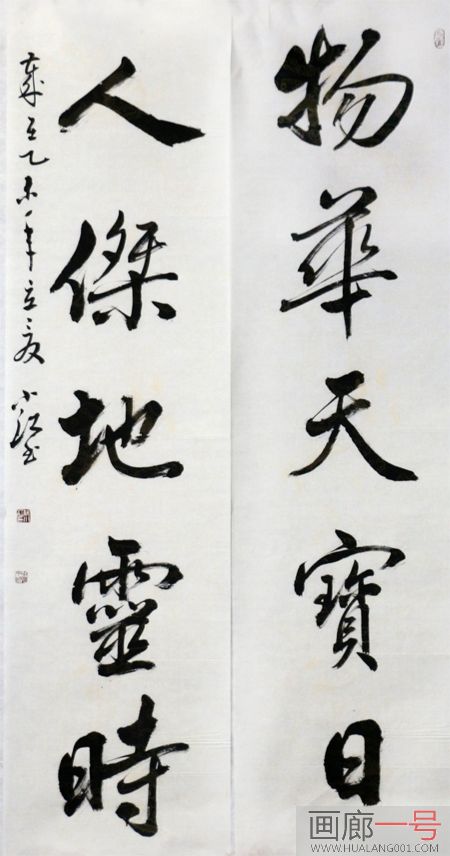 物華天寶日
人傑地靈時
歲在乙未年立夏 小红书
画廊一号
WWW.HUALANG001.COM